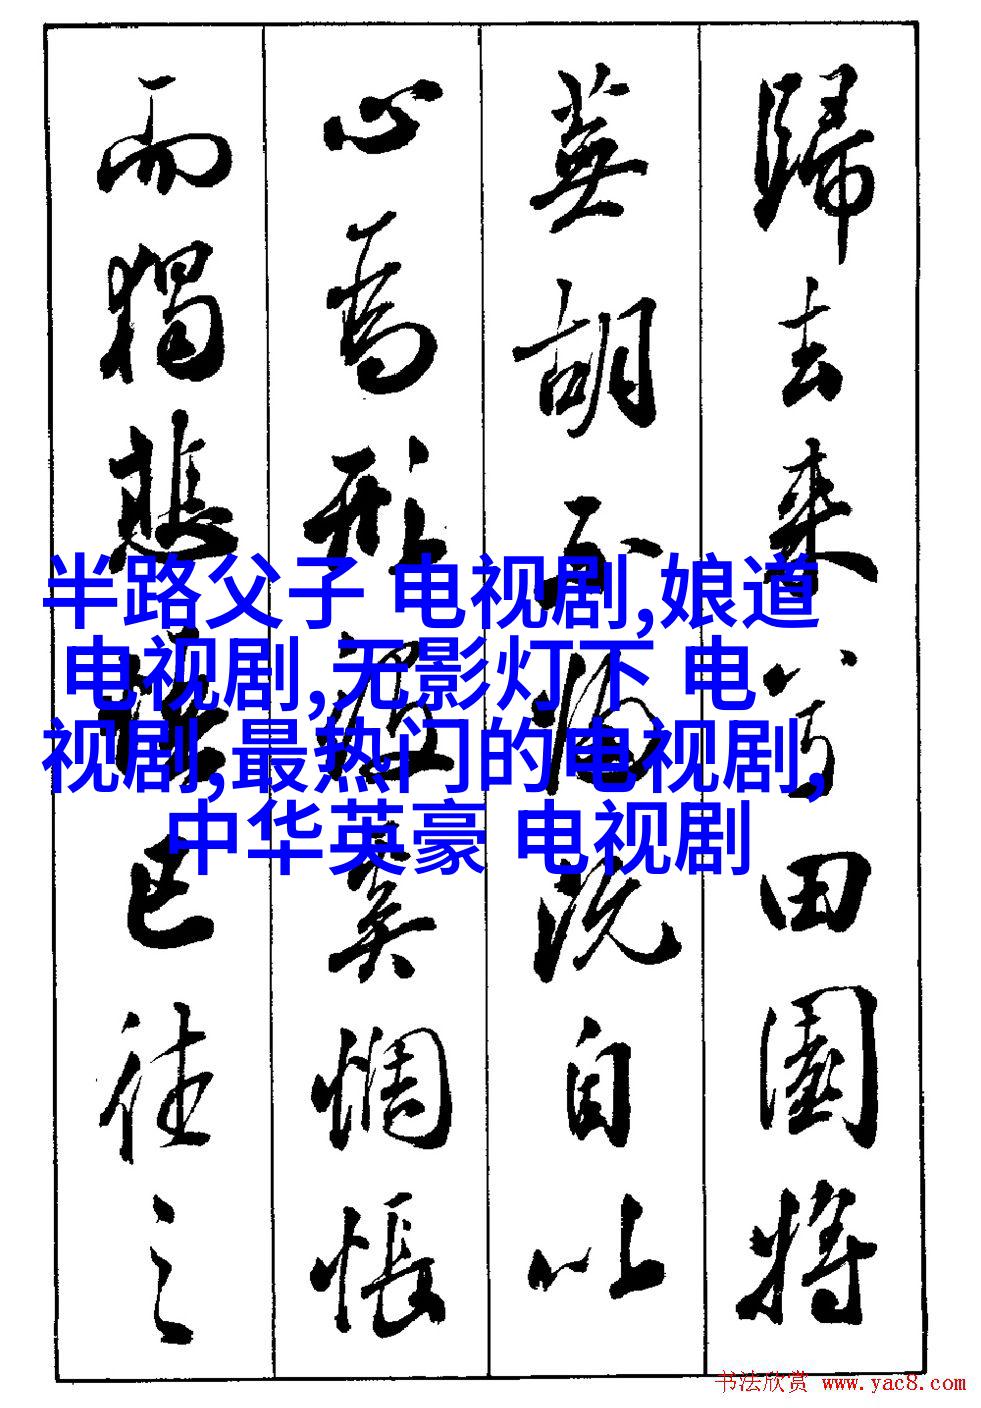 歸去来兮田園将
蕪胡不歸既自以
心為形役奚惆悵
而獨悲悟已往之
半路父子 电视剧,娘道
电视剧,无影灯下 电
视剧,最热门的电视剧,
中华英豪 电视剧
书法欣赏 www.yac8.com